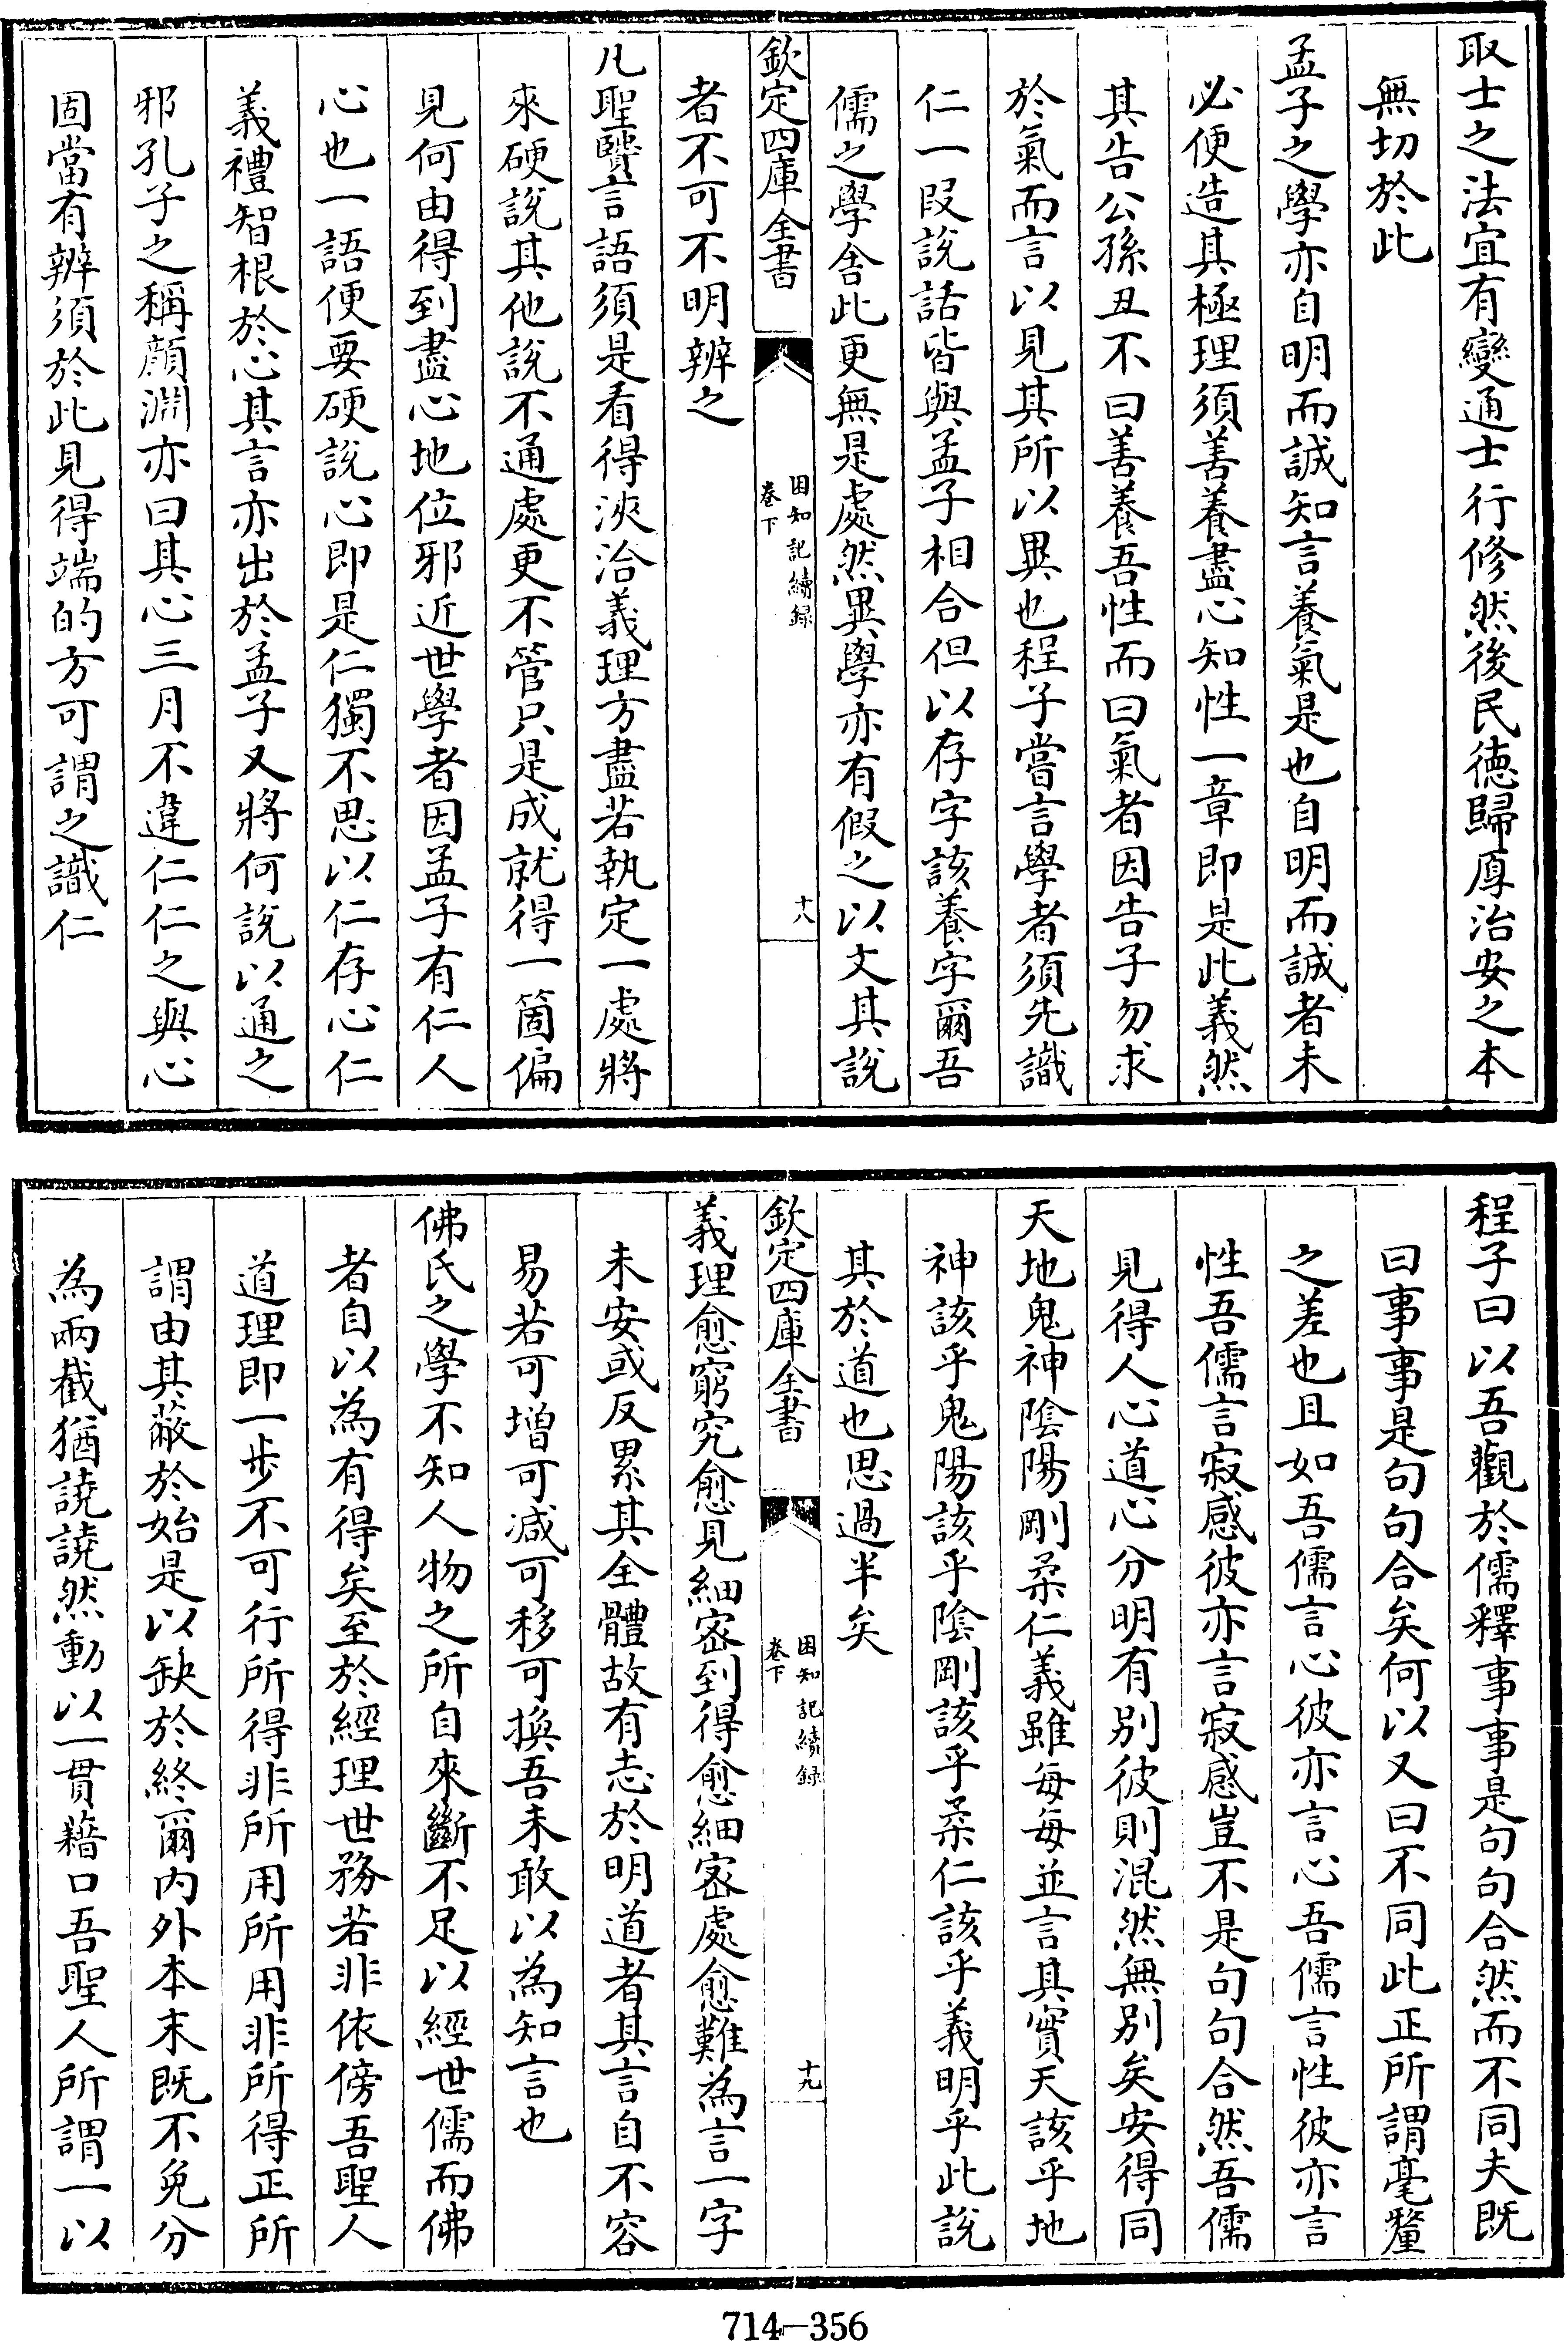 取士之法宜有變通士行修然後民徳歸厚治安之本
無切於此
孟子之學亦自明而誠知言養氣是也自明而誠者未
必便造其極理須善養盡心知性一章即是此義然
其告公孫丑不曰善養吾性而曰氣者因告子勿求
於氣而言以見其所以異也程子嘗言學者須先識
仁一段說話皆與孟子相合但以存字該養字爾吾
儒之學舍此更無是處然異學亦有假之以文其說
欽定四庫全書
困知記續録
卷下
十八
者不可不明辨之
凡聖賢言語須是看得浹洽義理方盡若執定一處將
來硬說其他說不通處更不管只是成就得一箇偏
見何由得到盡心地位邪近世學者因孟子有仁人
心也一語便要硬說心即是仁獨不思以仁存心仁
義禮智根於心其言亦出於孟子又將何說以通之
邪孔子之稱顔淵亦曰其心三月不違仁仁之與心
固當有辨須於此見得端的方可謂之識仁
程子曰以吾觀於儒釋事事是句句合然而不同夫既
曰事事是句句合矣何以又曰不同此正所謂毫釐
之差也且如吾儒言心彼亦言心吾儒言性彼亦言
性吾儒言寂感彼亦言寂感豈不是句句合然吾儒
見得人心道心分明有别彼則混然無别矣安得同
天地鬼神陰陽剛柔仁義雖每每並言其實天該乎地
神該乎鬼陽該乎陰剛該乎柔仁該乎義明乎此說
其於道也思過半矣
欽定四庫全書
困知記續録
卷下
十九
義理愈窮究愈見細宻到得愈細宻處愈難為言一字
未安或反累其全體故有志於明道者其言自不容
易若可增可减可移可換吾未敢以為知言也
佛氏之學不知人物之所自來斷不足以經世儒而佛
者自以為有得矣至於經理世務若非依傍吾聖人
道理即一歩不可行所得非所用所用非所得正所
謂由其蔽於始是以缺於終爾内外本末既不免分
為兩截猶譊譊然動以一貫藉口吾聖人所謂一以
714-356